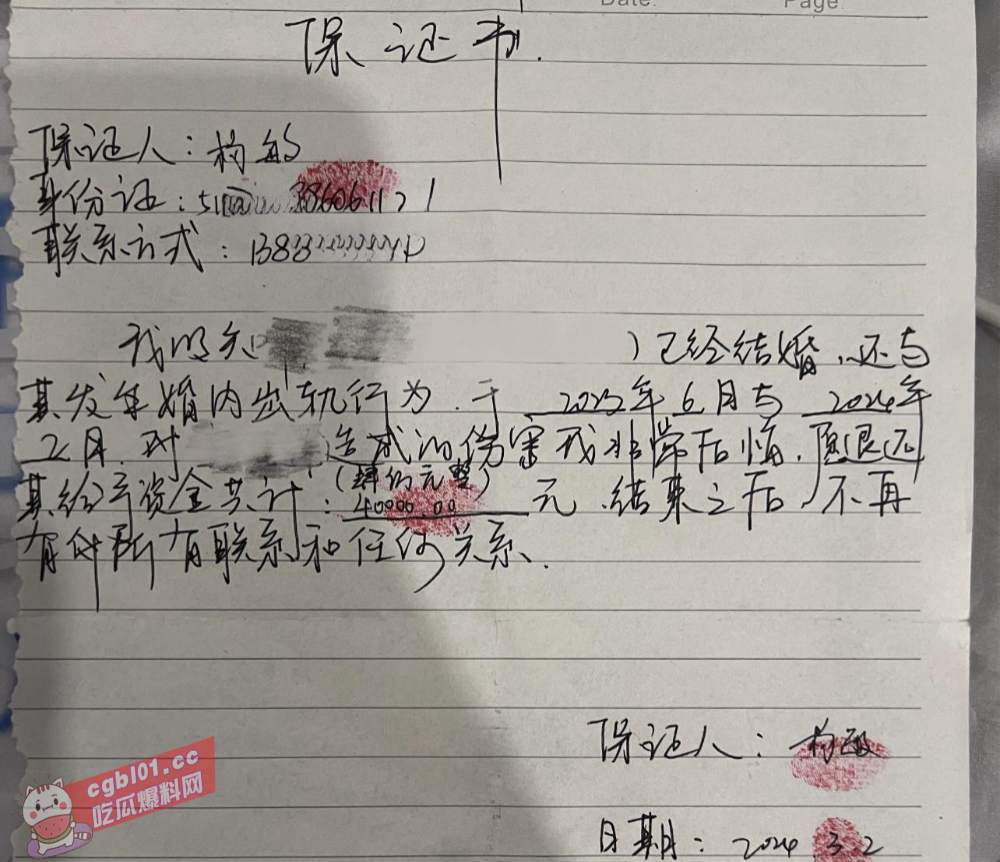 Date:
Page
保证书.
保证人:
身份证:
联系方式:
我明知 已经结婚,还与
其发生婚内出轨行为.于 2023年6月与 2024年
2月 对 造成的伤害我非常后悔.愿退还
(肆万元整)
其给予资金共计: 40000.00 元.结束之后,不再
有 所有联系和任何关系.
保证人:
日期: 2024 3.2
cgbl01.cc
吃瓜爆料网